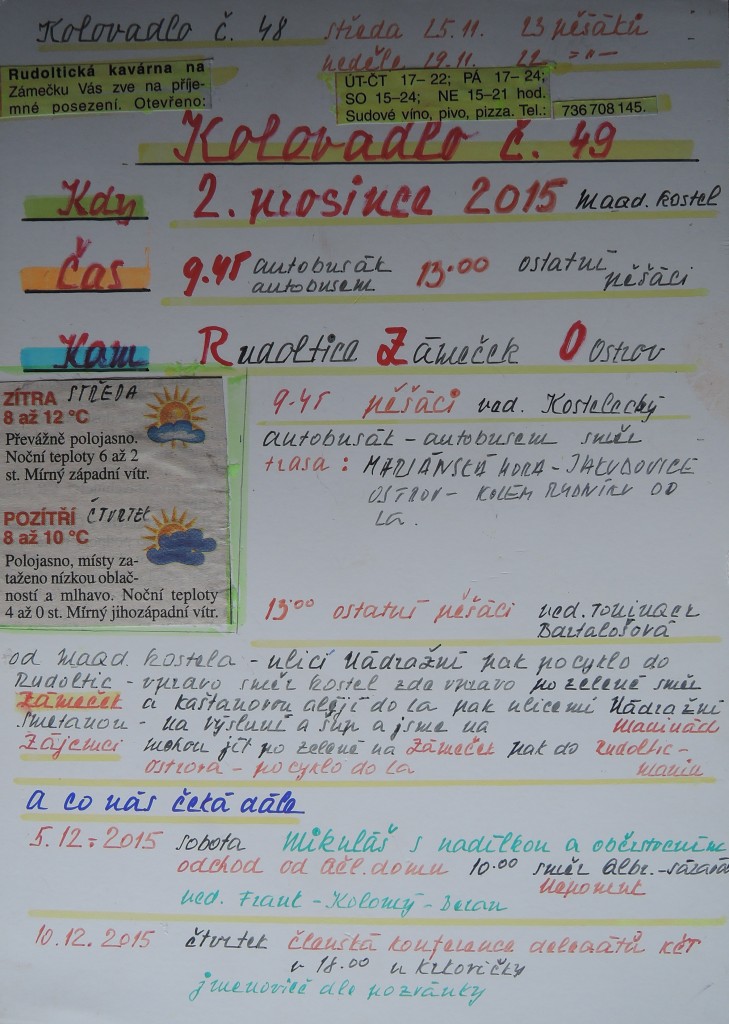 Kolovadlo č. 48 středa 25.11. 23 pěšáků
neděle 29.11. 22 -"-
Rudoltická kavárna na
Zámečku Vás zve na příje-
mné posezení. Otevřeno:
ÚT-ČT 17– 22; PÁ 17– 24;
SO 15–24; NE 15–21 hod.
Sudové víno, pivo, pizza. Tel.: 736 708 145.
Kolovadlo č. 49
Kdy 2. prosince 2015 Maad. kostel
Čas 9.45 autobusák 13.00 ostatní
autobusem pěšáci
Kam Rudoltice Zámeček O Ostrov
ZÍTRA STŘEDA
8 až 12 °C
Převážně polojasno.
Noční teploty 6 až 2
st. Mírný západní vítr.
POZÍTŘÍ ČTVRTEK
8 až 10 °C
Polojasno, místy za-
taženo nízkou oblač-
ností a mlhavo. Noční teploty
4 až 0 st. Mírný jihozápadní vítr.
9.45 pěšáci ved. Kostelecký
autobusák - autobusem směr
trasa : MARIÁNSKÁ HORA - JAKUBOVICE
OSTROV - KOLEM RYBNÍKU DO
LA.
13.00 ostatní pěšáci ved.
Bartalošová
od Maad. kostela - ulicí Nádražní pak po cyklo do
Rudoltic - vpravo směr kostel zda vpravo po zelené směr
Zámeček a kaštanovou alejí do La pak ulicemi Nádražní
Smetanou - na výsluní a šup a jsme na
Zájemci mohou jít po zelené na Zámeček pak do Rudoltic -
Ostrova - po cyklo do La
a co nás čeká dále
5.12.2015 sobota Mikuláš s nadílkou a občerstvením
odchod od 10.00 směr Albr.-sázava
Nepomuk
ved. Frank - Kolomý - Beran
10.12.2015 čtvrtek členská konference delegátů KČT
v 18.00 u Krkovičky
jmenovitě dle pozvánky